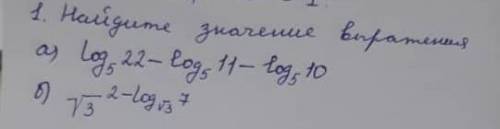 1. Найдите значение выражения
а) log₅22 – log₅11 – log₅10
б) √3^(2–log_√3 7)